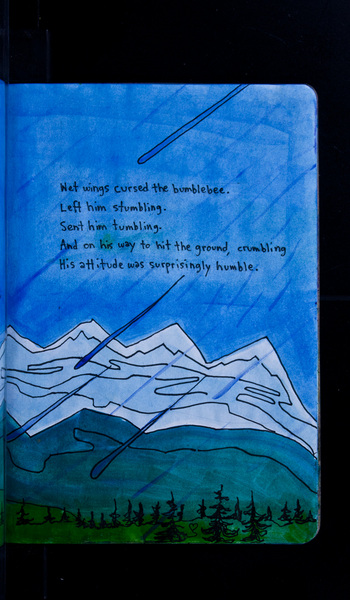 Wet wings cursed the bumblebee.
Left him stumbling.
Sent him tumbling.
And on his way to hit the ground, crumbling
His attitude was surprisingly humble.